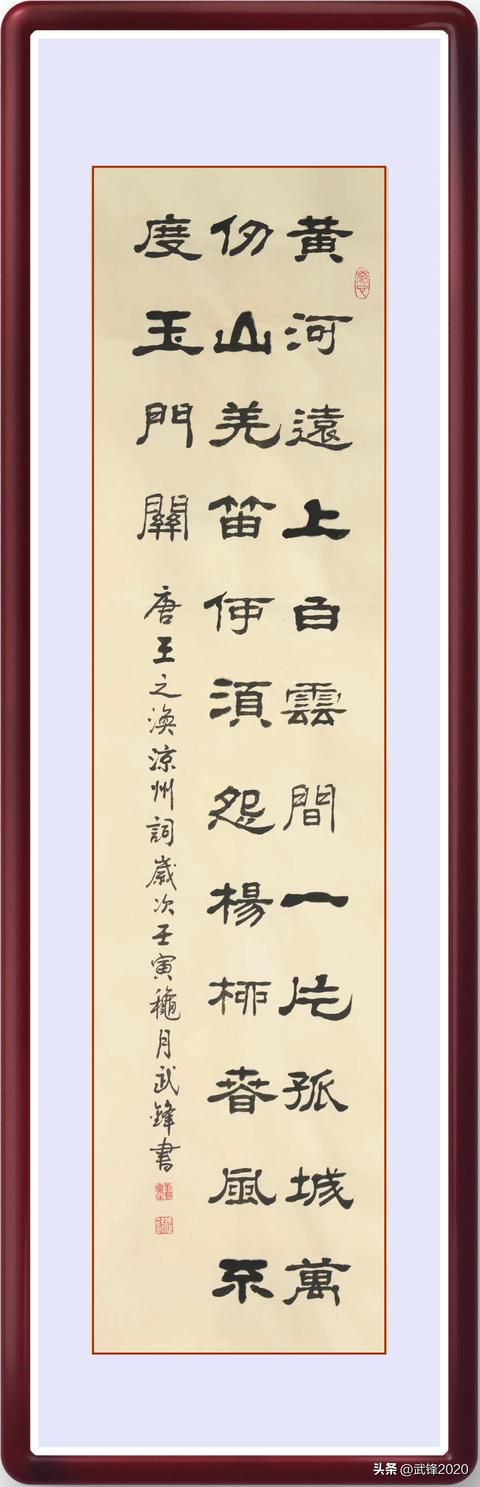 黃河遠上白雲間一片孤城萬
仞山羌笛何須怨楊柳春風不
度玉門關
唐王之渙涼州詞歲次壬寅穐月武鋒書
头条 @武锋2020